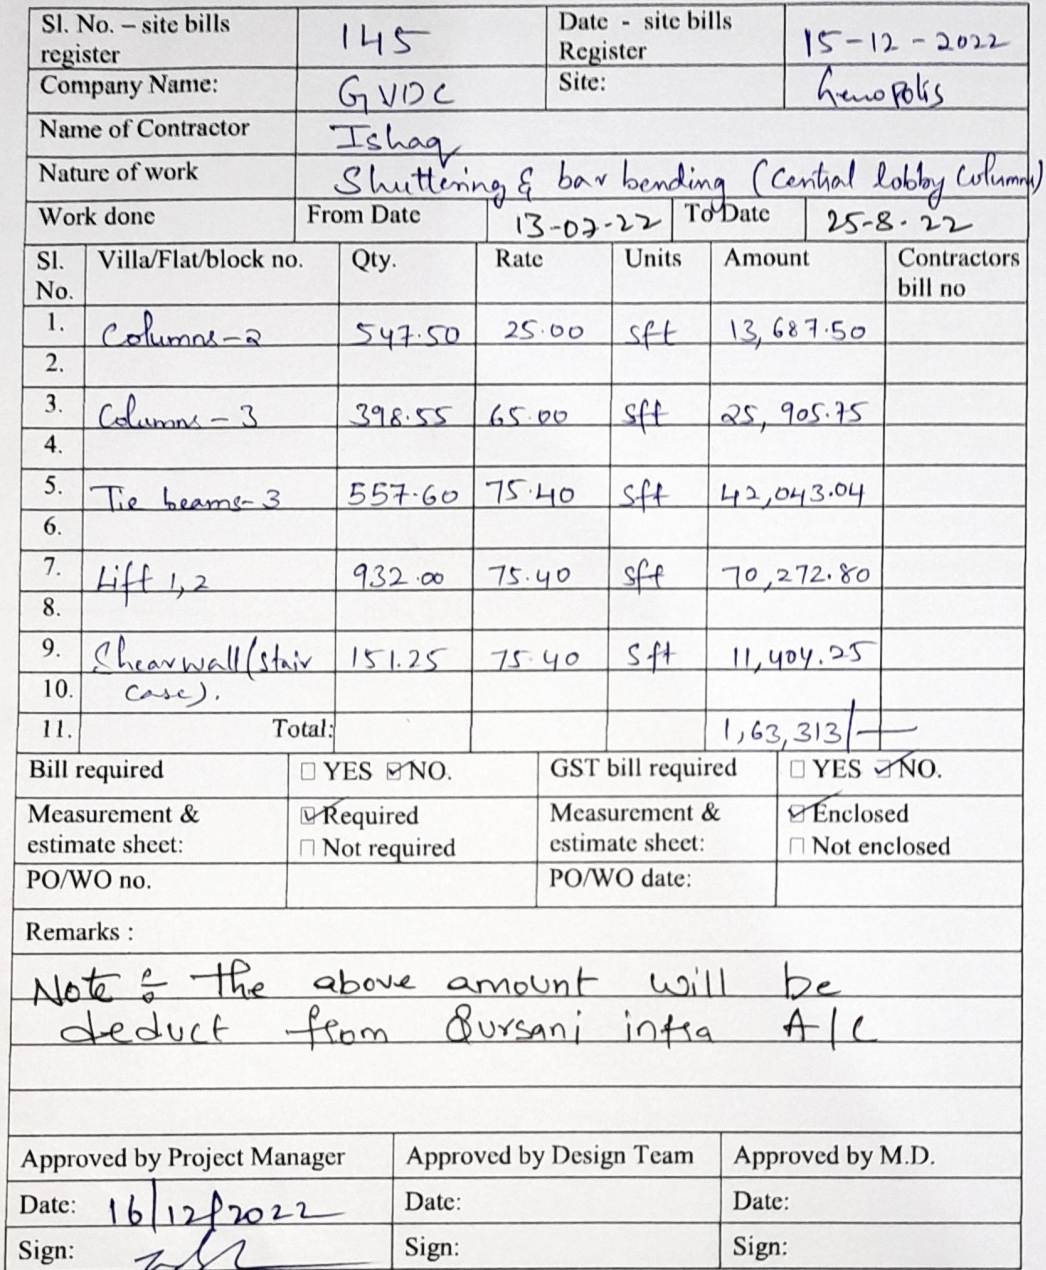 Sl. No. – site bills register 145 Date - site bills Register 15-12-2022
Company Name: GVDC Site: Genopolis
Name of Contractor Ishaq
Nature of work Shuttering & bar bending (Central lobby Columns)
Work done From Date 13-07-22 To Date 25-8-22
Sl. No. Villa/Flat/block no. Qty. Rate Units Amount Contractors bill no
1. Columns-2 547.50 25.00 sft 13,687.50
2.
3. Columns-3 398.55 65.00 sft 25,905.75
4.
5. Tie beams-3 557.60 75.40 sft 42,043.04
6.
7. Lift 1,2 932.00 75.40 sft 70,272.80
8.
9. Shearwall (stair 151.25 75.40 sft 11,404.25
10. case).
11. Total: 1,63,313/-
Bill required YES NO. GST bill required YES NO.
Measurement & estimate sheet: Required Measurement & estimate sheet: Enclosed
Not required Not enclosed
PO/WO no. PO/WO date:
Remarks :
Note : The above amount will be
deduct from Qursani infra A/C
Approved by Project Manager Approved by Design Team Approved by M.D.
Date: 16/12/2022 Date: Date:
Sign: Sign: Sign: